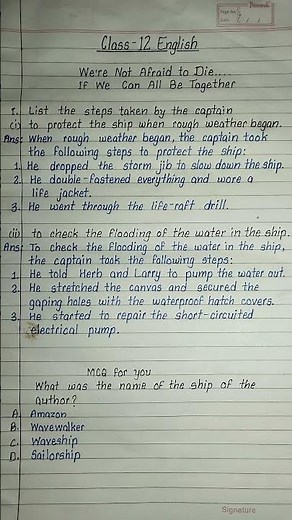 Class-12 English
We're Not Afraid to Die....
If We Can All Be Together
1. List the steps taken by the captain
(i) to protect the ship when rough weather began.
Ans: When rough weather began, the captain took
the following steps to protect the ship:
1. He dropped the storm jib to slow down the ship.
2. He double-fastened everything and wore a
life jacket.
3. He went through the life-raft drill.
(ii) to check the flooding of the water in the ship.
Ans: To check the flooding of the water in the ship,
the captain took the following steps:
1. He told Herb and Larry to pump the water out.
2. He stretched the canvas and secured the
gaping holes with the waterproof hatch covers.
3. He started to repair the short-circuited
electrical pump.
MCQ for you
What was the name of the ship of the
author?
A. Amazon
B. Wavewalker
C. Waveship
D. Sailorship
Signature